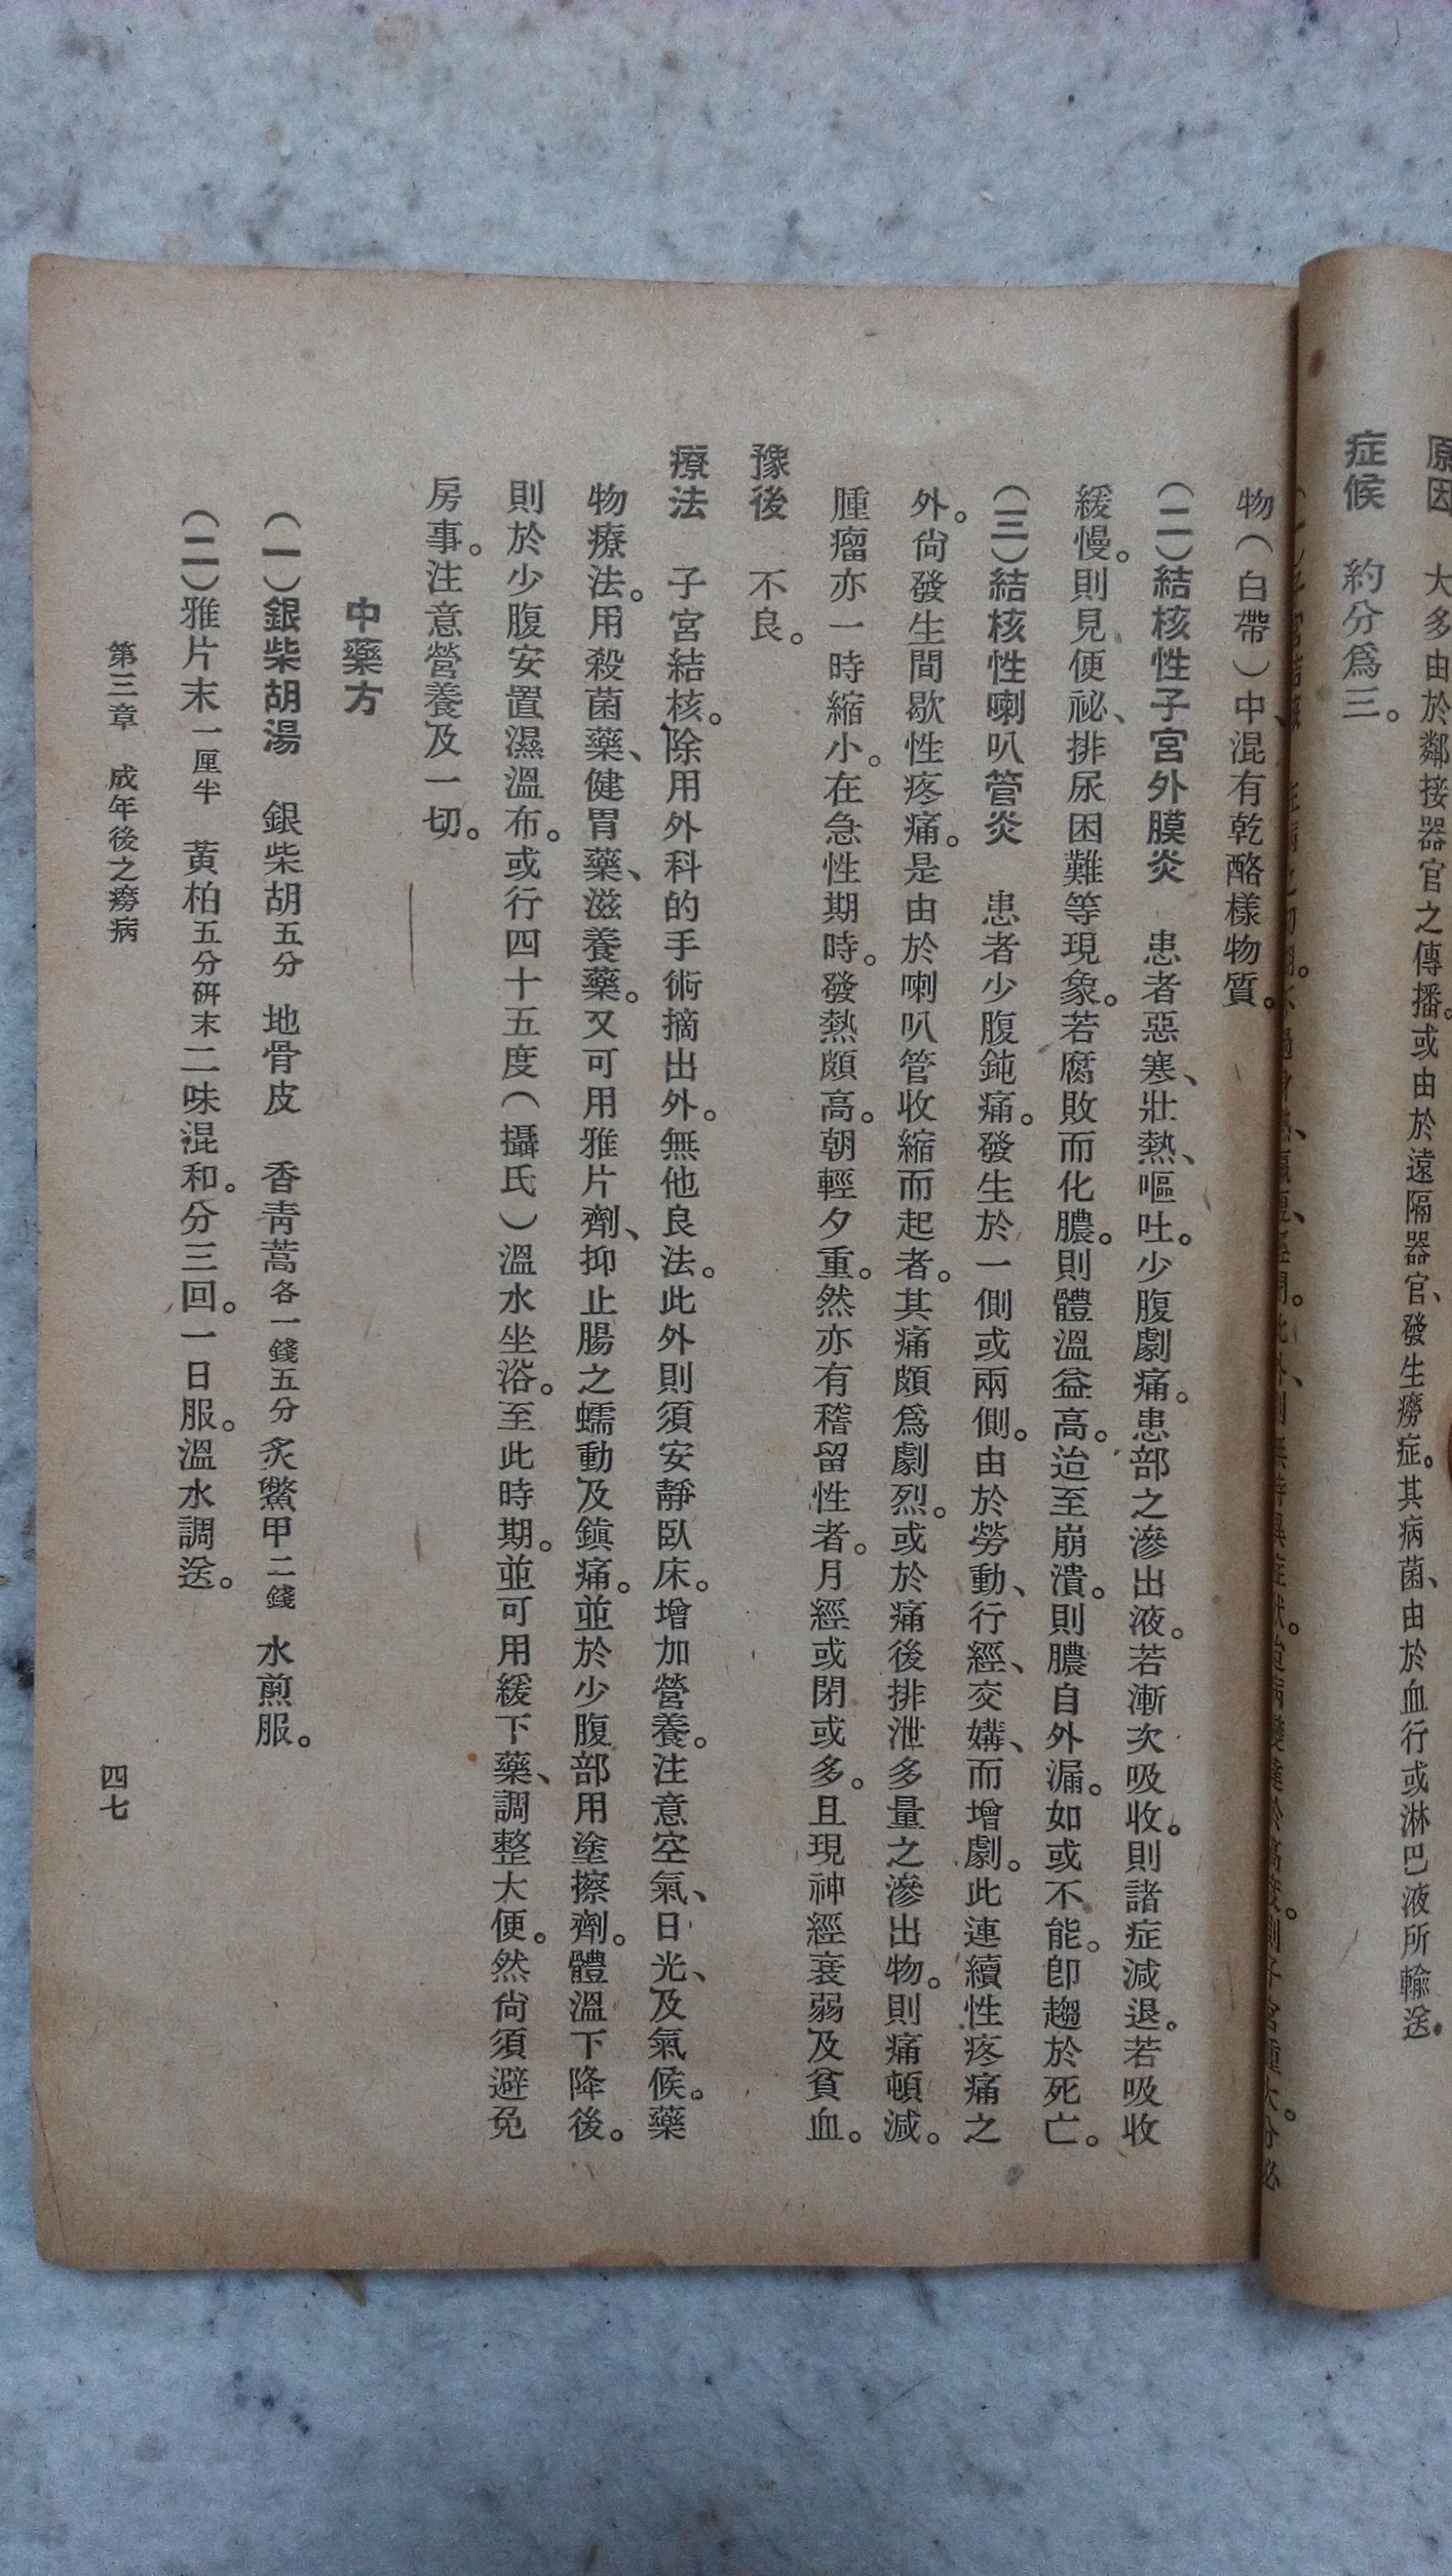 原因　大多由於鄰接器官之傳播。或由於遠隔器官、發生癆症。其病菌、由於血行或淋巴液所輸送。
症候　約分爲三。
物(白帶)中、混有乾酪樣物質。
(二)結核性子宮外膜炎　患者惡寒、壯熱、嘔吐。少腹劇痛。患部之滲出液。若漸次吸收。則諸症減退。若吸收
緩慢。則見便祕、排尿困難等現象。若腐敗而化膿。則體溫益高。迨至崩潰。則膿自外漏。如或不能。卽趨於死亡。
(三)結核性喇叭管炎　患者少腹鈍痛。發生於一側或兩側。由於勞動、行經、交媾、而增劇。此連續性疼痛之
外。尙發生間歇性疼痛。是由於喇叭管收縮而起者。其痛頗爲劇烈。或於痛後排泄多量之滲出物。則痛頓減。
腫瘤亦一時縮小。在急性期時。發熱頗高。朝輕夕重。然亦有稽留性者。月經或閉或多。且現神經衰弱及貧血。
豫後　不良。
療法　子宮結核。除用外科的手術摘出外。無他良法。此外則須安靜臥床。增加營養。注意空氣、日光、及氣候。藥
物療法。用殺菌藥、健胃藥、滋養藥。又可用雅片劑、抑止腸之蠕動及鎮痛。並於少腹部用塗擦劑。體溫下降後。
則於少腹安置濕溫布。或行四十五度(攝氏)溫水坐浴。至此時期。並可用緩下藥、調整大便。然尙須避免
房事。注意營養及一切。
中藥方
(一)銀柴胡湯　銀柴胡五分　地骨皮　香靑蒿各一錢五分　炙鱉甲二錢　水煎服。
(二)雅片末一厘半　黃柏五分硏末二味混和。分三回。一日服。溫水調送。
第三章　成年後之癆病
四七